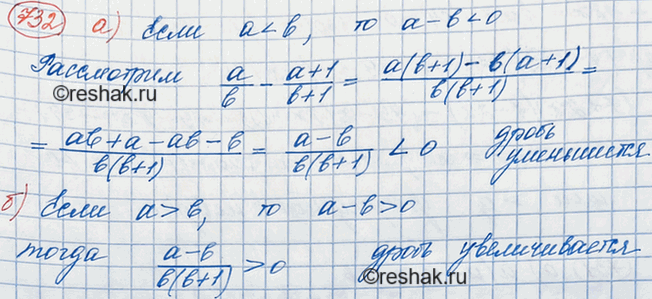 732 а) Если a < b, то a − b < 0
Рассмотрим a/b − (a+1)/(b+1) = (a(b+1) − b(a+1))/(b(b+1)) =
©reshak.ru
= (ab + a − ab − b)/(b(b+1)) = (a − b)/(b(b+1)) < 0 дробь уменьшится
б) Если a > b, то a − b > 0
тогда (a−b)/(b(b+1)) > 0 дробь увеличивается
©reshak.ru